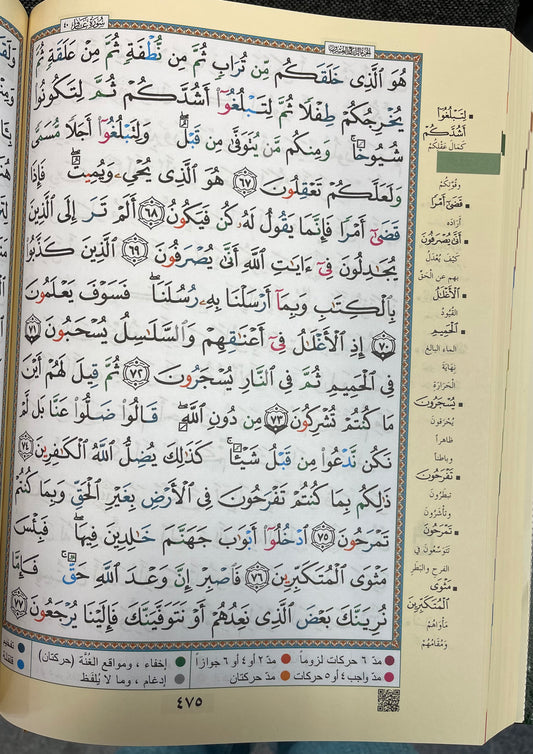 سُورَةُ غَافِرٍ ٤٠
هُوَ ٱلَّذِى خَلَقَكُم مِّن تُرَابٍ ثُمَّ مِن نُّطْفَةٍ ثُمَّ مِنْ عَلَقَةٍ ثُمَّ
يُخْرِجُكُمْ طِفْلًا ثُمَّ لِتَبْلُغُوٓا۟ أَشُدَّكُمْ ثُمَّ لِتَكُونُوا۟
شُيُوخًا ۚ وَمِنكُم مَّن يُتَوَفَّىٰ مِن قَبْلُ ۖ وَلِتَبْلُغُوٓا۟ أَجَلًا مُّسَمًّى
وَلَعَلَّكُمْ تَعْقِلُونَ ٦٧ هُوَ ٱلَّذِى يُحْىِۦ وَيُمِيتُ ۖ فَإِذَا
قَضَىٰٓ أَمْرًا فَإِنَّمَا يَقُولُ لَهُۥ كُن فَيَكُونُ ٦٨ أَلَمْ تَرَ إِلَى ٱلَّذِينَ
يُجَـٰدِلُونَ فِىٓ ءَايَـٰتِ ٱللَّهِ أَنَّىٰ يُصْرَفُونَ ٦٩ ٱلَّذِينَ كَذَّبُوا۟
بِٱلْكِتَـٰبِ وَبِمَآ أَرْسَلْنَا بِهِۦ رُسُلَنَا ۖ فَسَوْفَ يَعْلَمُونَ
٧٠ إِذِ ٱلْأَغْلَـٰلُ فِىٓ أَعْنَـٰقِهِمْ وَٱلسَّلَـٰسِلُ يُسْحَبُونَ ٧١
فِى ٱلْحَمِيمِ ثُمَّ فِى ٱلنَّارِ يُسْجَرُونَ ٧٢ ثُمَّ قِيلَ لَهُمْ أَيْنَ
مَا كُنتُمْ تُشْرِكُونَ ٧٣ مِن دُونِ ٱللَّهِ ۖ قَالُوا۟ ضَلُّوا۟ عَنَّا بَل لَّمْ
نَكُن نَّدْعُوا۟ مِن قَبْلُ شَيْـًٔا ۚ كَذَٰلِكَ يُضِلُّ ٱللَّهُ ٱلْكَـٰفِرِينَ ٧٤
ذَٰلِكُم بِمَا كُنتُمْ تَفْرَحُونَ فِى ٱلْأَرْضِ بِغَيْرِ ٱلْحَقِّ وَبِمَا كُنتُمْ
تَمْرَحُونَ ٧٥ ٱدْخُلُوٓا۟ أَبْوَٰبَ جَهَنَّمَ خَـٰلِدِينَ فِيهَا ۖ فَبِئْسَ
مَثْوَى ٱلْمُتَكَبِّرِينَ ٧٦ فَٱصْبِرْ إِنَّ وَعْدَ ٱللَّهِ حَقٌّ ۚ فَإِمَّا
نُرِيَنَّكَ بَعْضَ ٱلَّذِى نَعِدُهُمْ أَوْ نَتَوَفَّيَنَّكَ فَإِلَيْنَا يُرْجَعُونَ ٧٧
لِتَبْلُغُوٓا۟
أَشُدَّكُمْ
كَمَالَ عَقْلِكُمْ
وَقُوَّتِكُمْ
قَضَىٰٓ أَمْرًا
أَرَادَهُ
أَنَّىٰ يُصْرَفُونَ
كَيْفَ يُعْدَلُ
بهم عن الحَقِّ
ٱلْأَغْلَـٰلُ
القُيُودُ
ٱلْحَمِيمِ
الماء البالغ
نِهَايَةَ
الحَرَارَةِ
يُسْجَرُونَ
يُحْرَقُونَ
ظاهراً
وباطناً
تَفْرَحُونَ
تبطرُونَ
وتأشَرُونَ
تَمْرَحُونَ
تَتَوَسَّعُونَ في
الفرح والبَطَرِ
مَثْوَى
ٱلْمُتَكَبِّرِينَ
مَأْوَاهُمْ
وَمُقَامُهُمْ
مدّ ٦ حركات لزوماً مدّ ٢ أو ٤ أو ٦ جوازاً إخفاء ، ومواقع الغُنَّة (حركتان) تفخيم
مدّ واجب ٤ أو ٥ حركات مدّ حركتان إدغام ، وما لا يُلفَظ قلقلة
٤٧٥